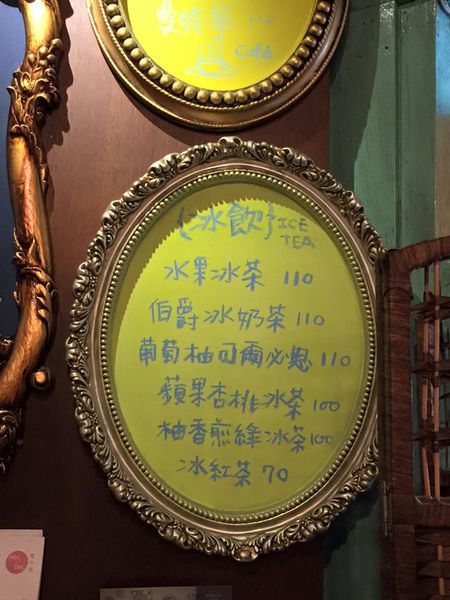 110
Café
{冰飲}
ICE
TEA
水果冰茶 110
伯爵冰奶茶 110
葡萄柚可爾必思 110
蘋果杏桃冰茶 100
柚香煎綠冰茶 100
冰紅茶 70